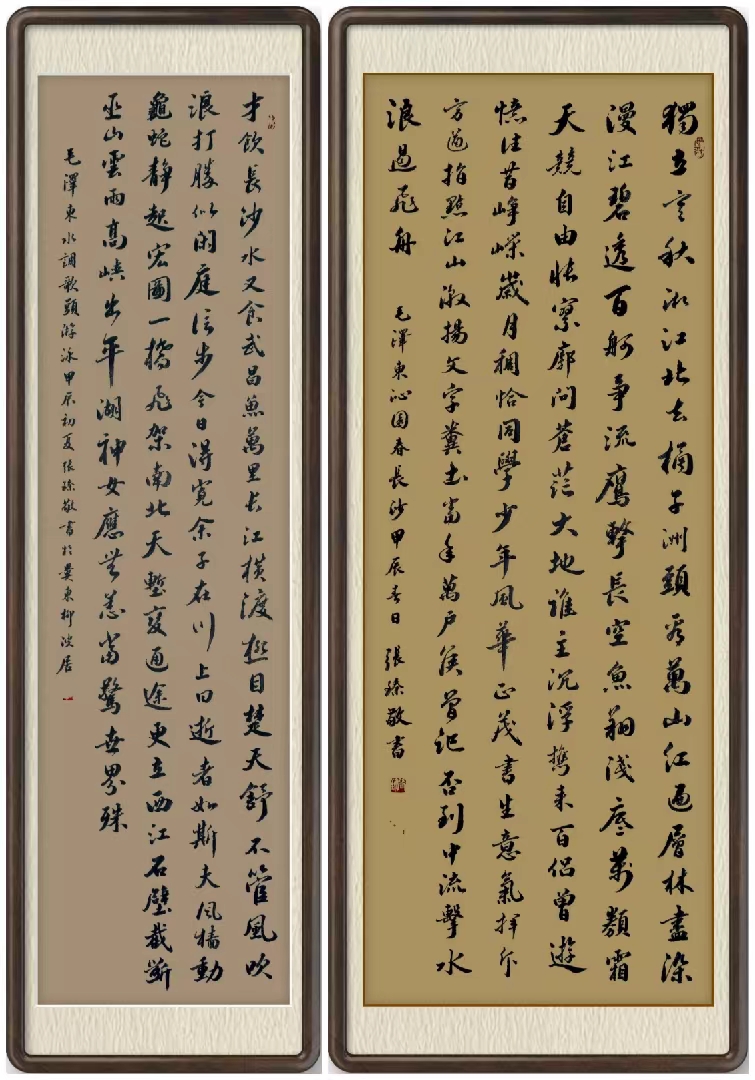 獨立寒秋湘江北去橘子洲頭看萬山紅遍層林盡染
漫江碧透百舸爭流鷹擊長空魚翔淺底萬類霜
天競自由悵寥廓問蒼茫大地誰主沉浮攜來百侶曾遊
憶往昔崢嶸歲月稠恰同學少年風華正茂書生意氣揮斥
方遒指點江山激揚文字糞土當年萬戶侯曾記否到中流擊水
浪遏飛舟
毛澤東沁園春長沙甲辰春日張臻敬書
才飲長沙水又食武昌魚萬里長江橫渡極目楚天舒不管風吹
浪打勝似閑庭信步今日得寬余子在川上曰逝者如斯夫風檣動
龜蛇靜起宏圖一橋飛架南北天塹變通途更立西江石壁截斷
巫山雲雨高峽出平湖神女應無恙當驚世界殊
毛澤東水調歌頭游泳甲辰初夏張臻敬書於冀東柳居